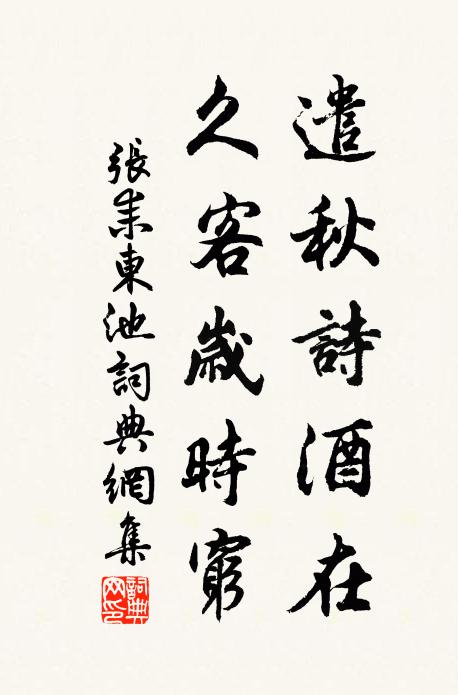 遣秋詩酒在
久客歲時窮
張耒東池詞典網集
詞典网印